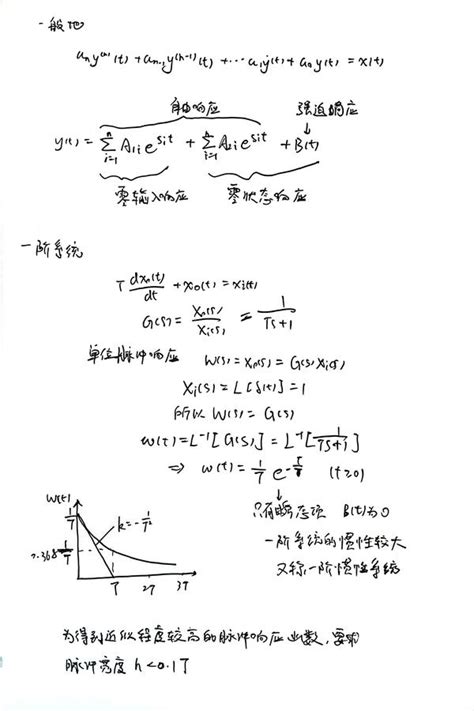 一般地
aₙy⁽ⁿ⁾(t) + aₙ₋₁y⁽ⁿ⁻¹⁾(t) + ⋯ a₁ẏ(t) + a₀y(t) = x(t)
自由响应 强迫响应
y(t) = ∑ᵢ₌₁ⁿ A₁ᵢe^{sᵢt} + ∑ᵢ₌₁ⁿ A₂ᵢe^{sᵢt} + B(t)
零输入响应 零状态响应
一阶系统
T dx₀(t)/dt + x₀(t) = xᵢ(t)
G(s) = X₀(s)/Xᵢ(s) = 1/(Ts+1)
单位脉冲响应 W(s) = X₀(s) = G(s)Xᵢ(s)
Xᵢ(s) = L[δ(t)] = 1
所以 W(s) = G(s)
w(t) = L⁻¹[G(s)] = L⁻¹[1/(Ts+1)]
⇒ w(t) = 1/T e^{-t/T} (t≥0)
w(t)
1/T
k = -1/T²
只有瞬态项 B(t)为0
0.368 1/T
一阶系统的惯性较大
又称一阶惯性系统
T 2T 3T
为得到近似程度较高的脉冲响应函数，要求
脉冲宽度 h<0.1T